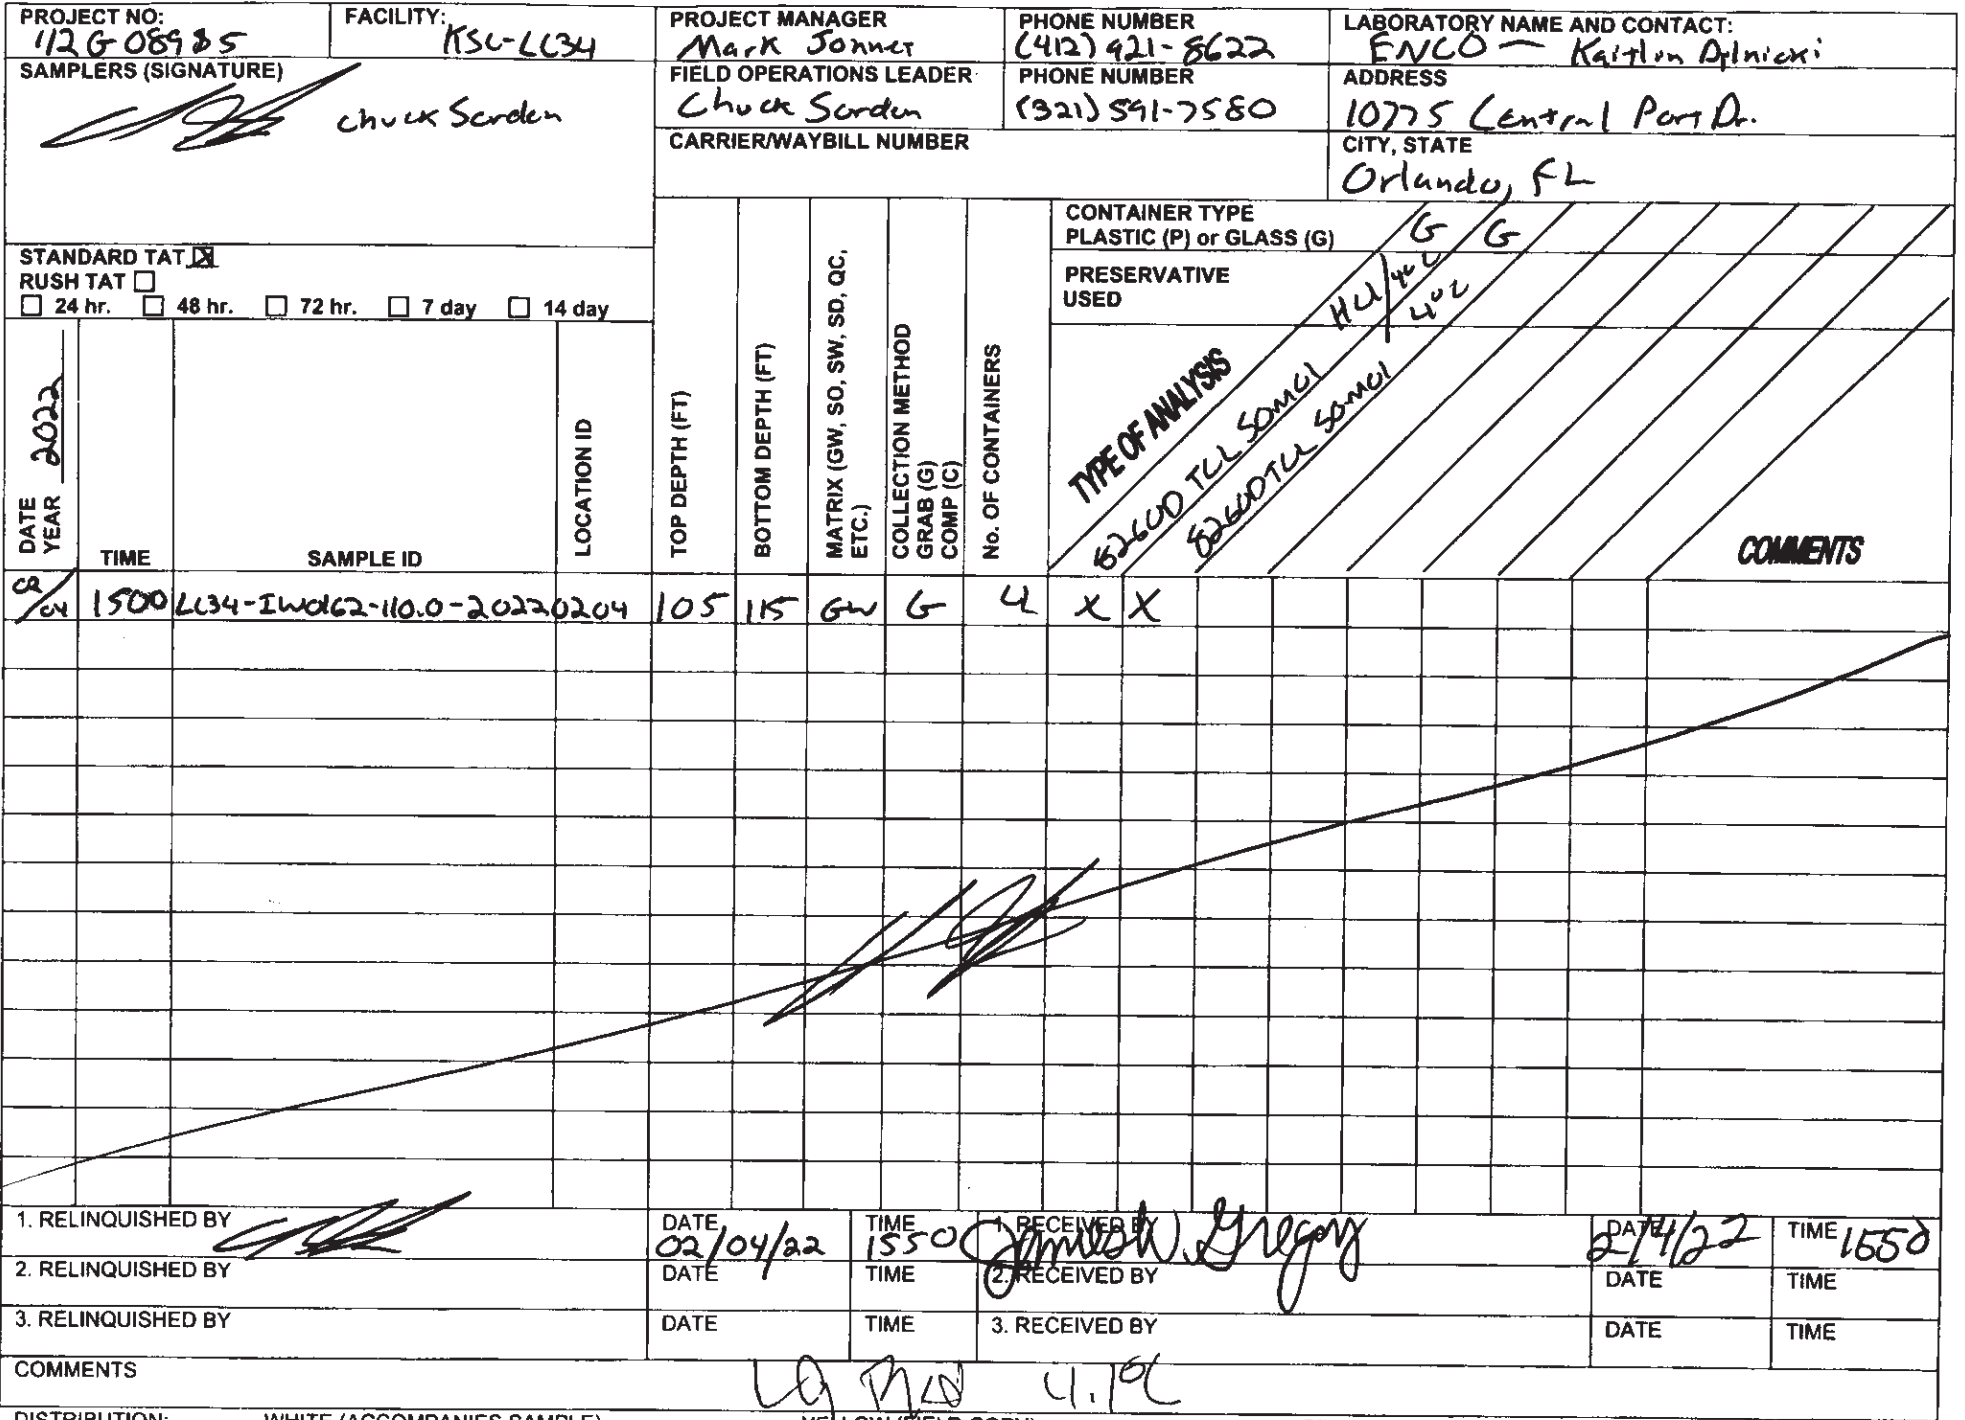 PROJECT NO: FACILITY: PROJECT MANAGER PHONE NUMBER LABORATORY NAME AND CONTACT:
112G08985 KSC-LC34 Mark Jonnet (412) 921-8622 ENCO — Kaitlin
SAMPLERS (SIGNATURE) FIELD OPERATIONS LEADER PHONE NUMBER ADDRESS
Chuck Sorden Chuck Sorden (321) 591-7580 10775 Central Port Dr.
CARRIER/WAYBILL NUMBER CITY, STATE
Orlando, FL
STANDARD TAT
RUSH TAT
24 hr. 48 hr. 72 hr. 7 day 14 day
CONTAINER TYPE
PLASTIC (P) or GLASS (G) G G
PRESERVATIVE
USED HCl/4°C 4°C
TYPE OF ANALYSIS
8260D TCL SOM01
8260D TCL SOM01
DATE
YEAR 2022
TIME
SAMPLE ID
LOCATION ID
TOP DEPTH (FT)
BOTTOM DEPTH (FT)
MATRIX (GW, SO, SW, SD, QC,
ETC.)
COLLECTION METHOD
GRAB (G)
COMP (C)
No. OF CONTAINERS
COMMENTS
02/04 1500 LC34-IW0162-110.0-20220204 105 115 GW G 4 X X
1. RELINQUISHED BY DATE 02/04/22 TIME 1550 1. RECEIVED BY James W. Gregory DATE 2/4/22 TIME 1550
2. RELINQUISHED BY DATE TIME 2. RECEIVED BY DATE TIME
3. RELINQUISHED BY DATE TIME 3. RECEIVED BY DATE TIME
COMMENTS
4.1°C
DISTRIBUTION: WHITE (ACCOMPANIES SAMPLE) YELLOW (FIELD COPY)